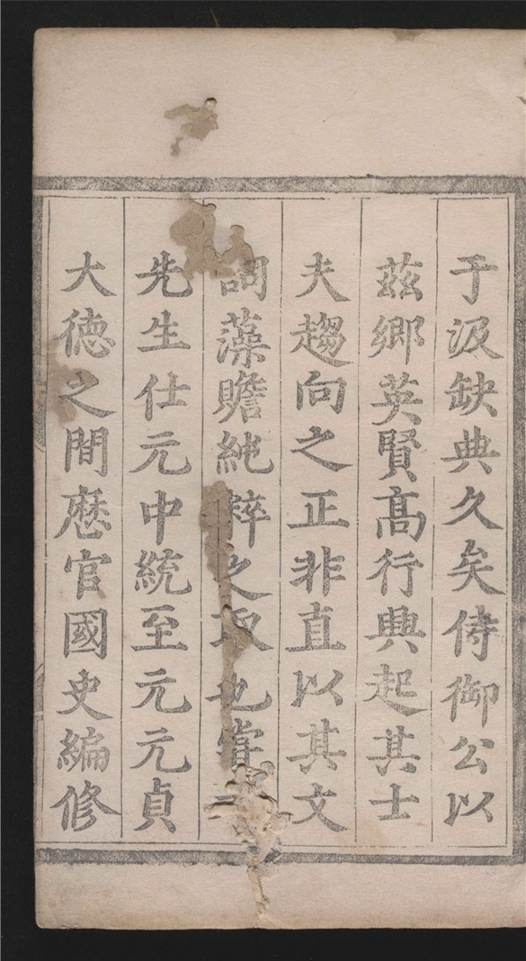 于汲缺典久矣侍御公以
茲鄉英賢高行典起其士
夫趨向之正非直以其文
詞藻贍純粹之取也嘗
先生仕元中統至元元貞
大德之間歷官國史編修